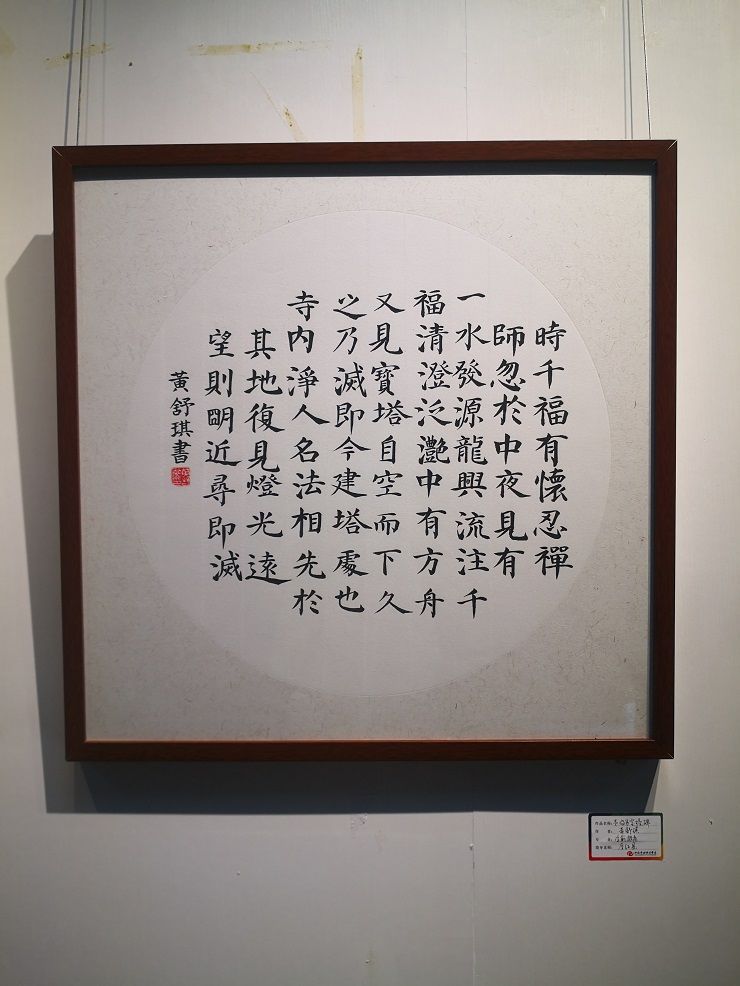 時千福有懷忍禪
師忽於中夜見有
一水發源龍興流注千
福清澄泛灩中有方舟
又見寶塔自空而下久
之乃滅即今建塔處也
寺內淨人名法相先於
其地復見燈光遠
望則明近尋即滅
黃舒琪書
作品名称:
作者: 黄舒琪